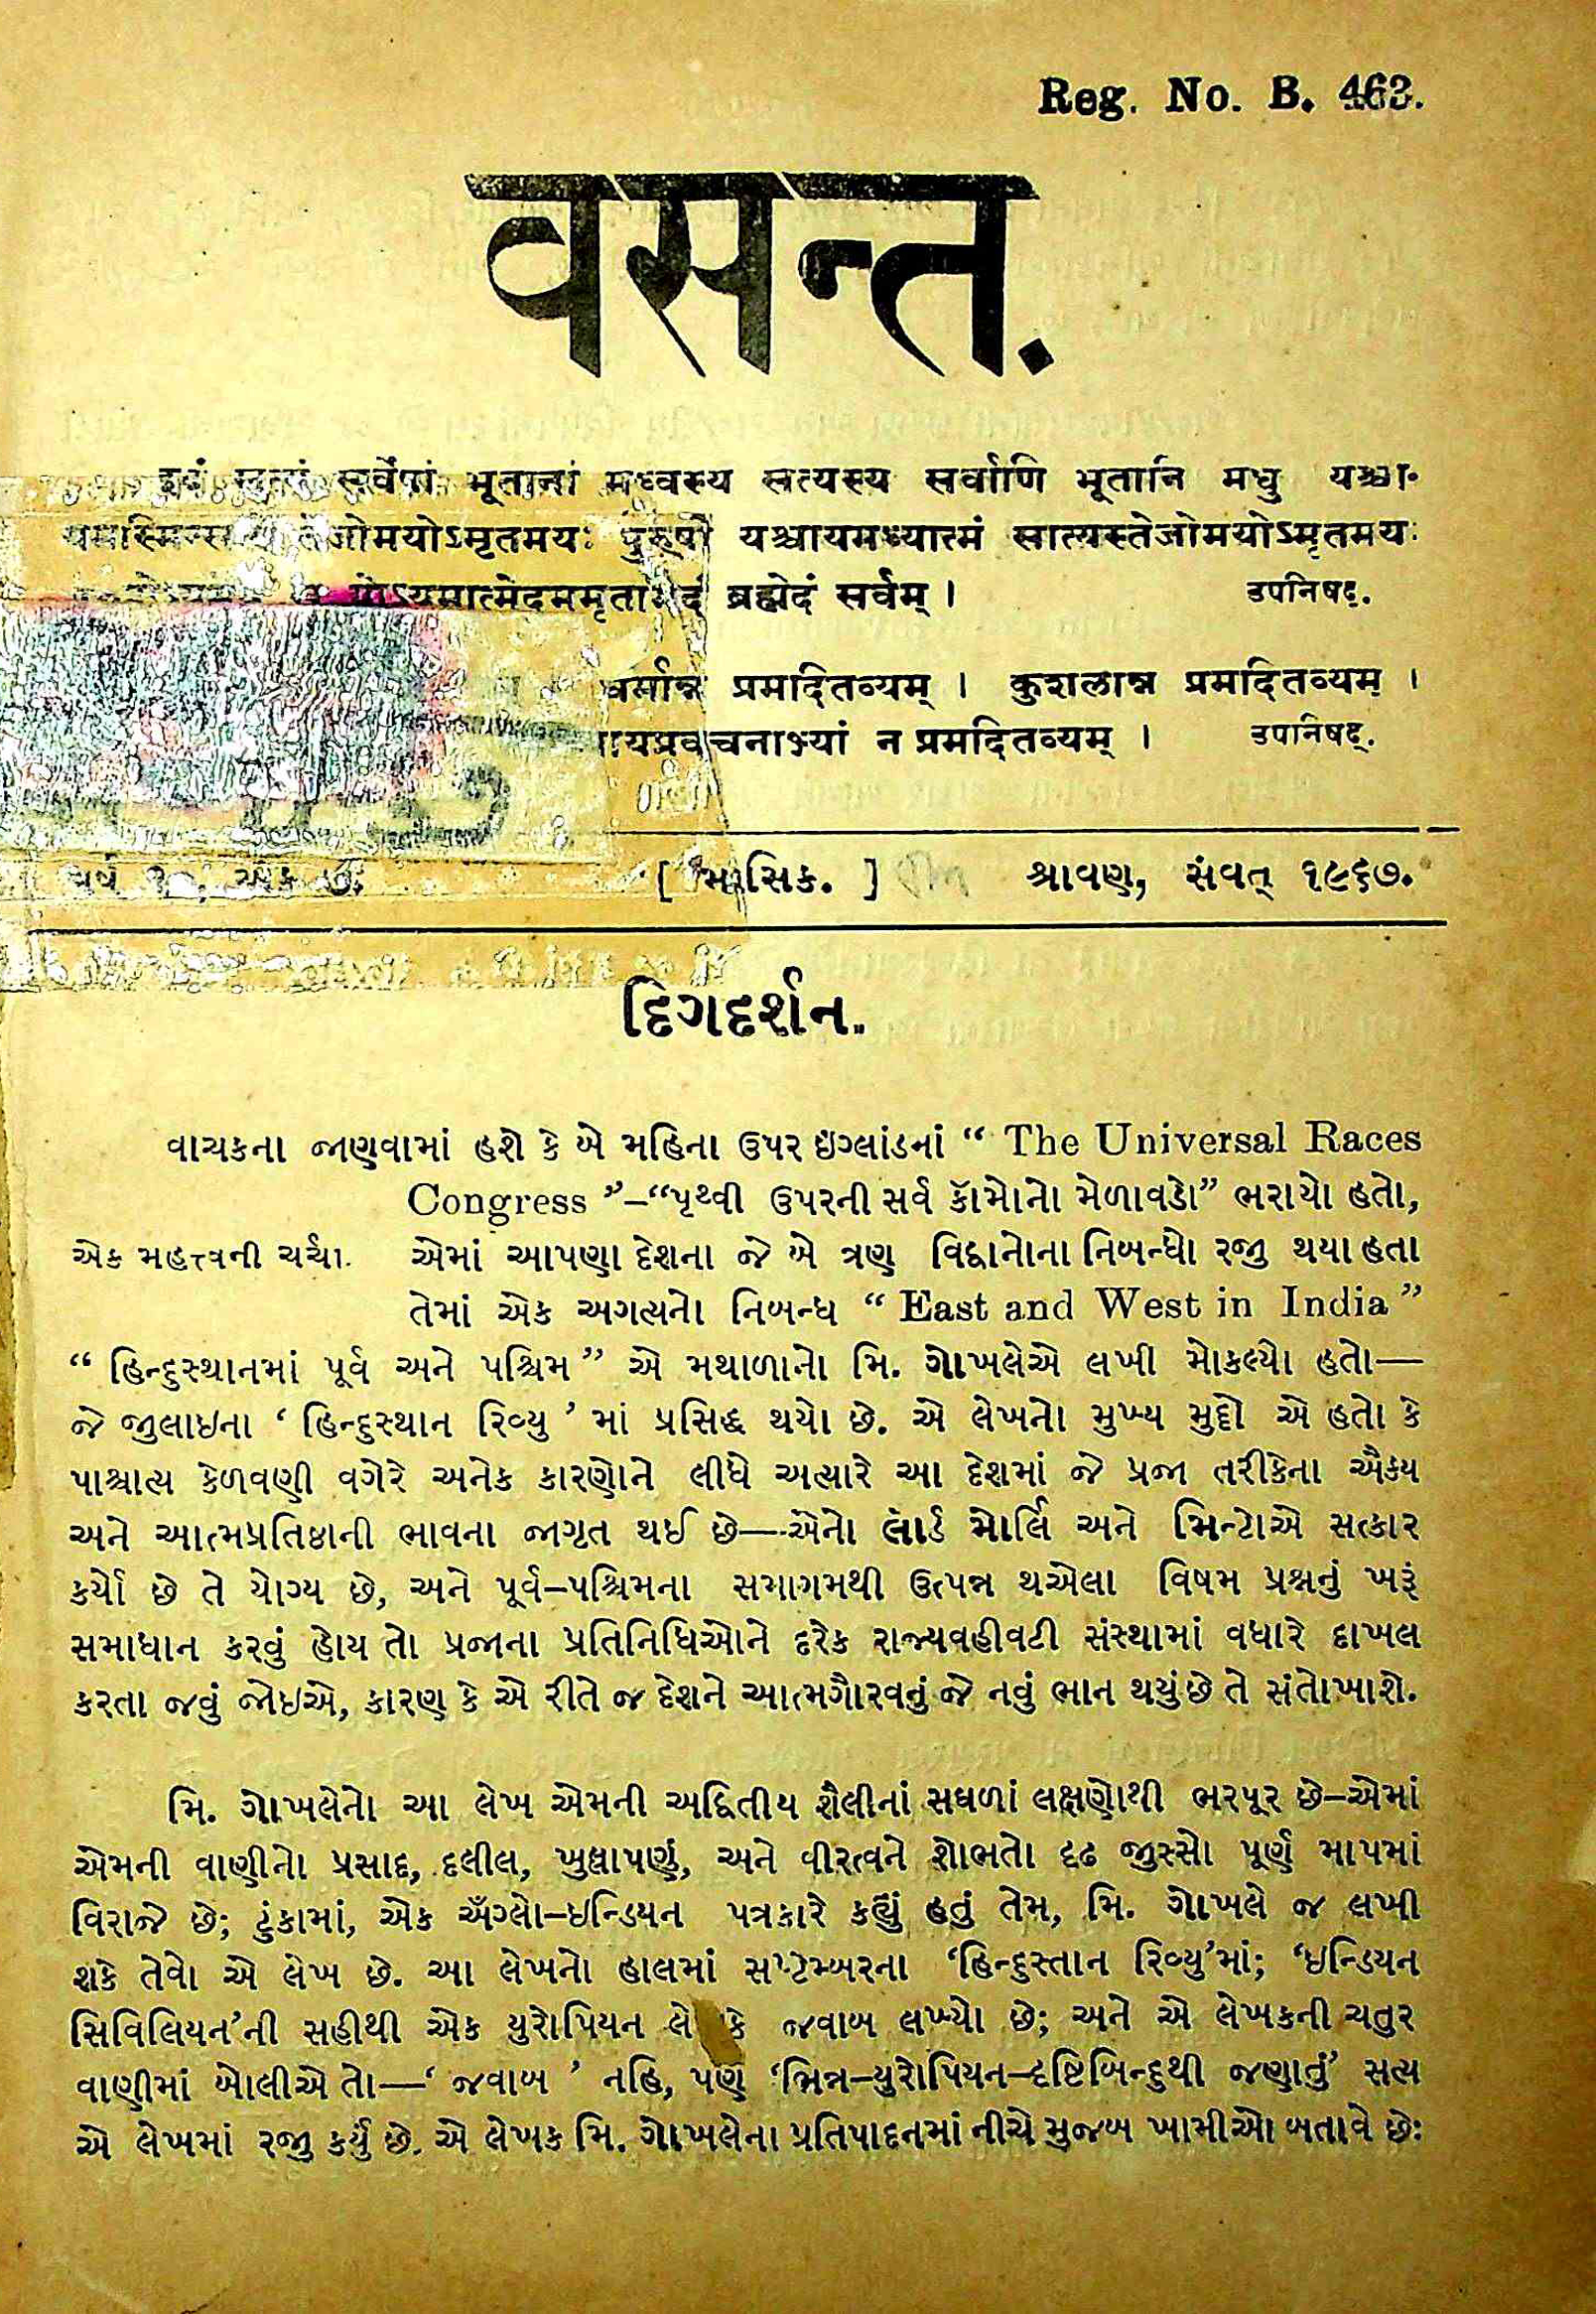 Reg. No. B. 463.
वसन्त.
इदं सत्यं सर्वेषां भूतानां मध्वस्य सत्यस्य सर्वाणि भूतानि मधु यश्चा-
यमस्मिन्सत्ये तेजोमयोऽमृतमयः पुरुषो यश्चायमध्यात्मं सात्यस्तेजोमयोऽमृतमयः
योऽयमात्मेदममृतमिदं ब्रह्मेदं सर्वम् । उपनिषद्.
धर्मान्न प्रमदितव्यम् । कुशलान्न प्रमदितव्यम् ।
यप्रवचनाभ्यां न प्रमदितव्यम् । उपनिषद्.
વર્ષ અંક ૭. [ માસિક. ] શ્રાવણ, સંવત્ ૧૯૬૭.
દિગદર્શન.
વાચકના જાણવામાં હશે કે બે મહિના ઉપર ઇંગ્લાંડનાં “ The Universal Races
Congress ”–“પૃથ્વી ઉપરની સર્વ કૉમોનો મેળાવડો” ભરાયો હતો,
એક મહત્ત્વની ચર્ચા. એમાં આપણા દેશના જે બે ત્રણ વિદ્વાનોના નિબન્ધો રજી થયા હતા
તેમાં એક અગત્યનો નિબન્ધ “ East and West in India ”
“ હિન્દુસ્થાનમાં પૂર્વ અને પશ્ચિમ ” એ મથાળાનો મિ. ગોખલેએ લખી મોકલ્યો હતો—
જે જુલાઇના ‘ હિન્દુસ્થાન રિવ્યુ ’ માં પ્રસિદ્ધ થયો છે. એ લેખનો મુખ્ય મુદ્દો એ હતો કે
પાશ્ચાત્ય કેળવણી વગેરે અનેક કારણોને લીધે અત્યારે આ દેશમાં જે પ્રજા તરીકેના ઐક્ય
અને આત્મપ્રતિષ્ઠાની ભાવના જાગૃત થઈ છે—એનો લૉર્ડ મોર્લિ અને મિન્ટોએ સત્કાર
કર્યો છે તે યોગ્ય છે, અને પૂર્વ–પશ્ચિમના સમાગમથી ઉત્પન્ન થએલા વિષમ પ્રશ્નનું ખરૂં
સમાધાન કરવું હોય તો પ્રજાના પ્રતિનિધિઓને દરેક રાજ્યવહીવટી સંસ્થામાં વધારે દાખલ
કરતા જવું જોઇએ, કારણ કે એ રીતે જ દેશને આત્મગૌરવનું જે નવું ભાન થયું છે તે સંતોખાશે.
મિ. ગોખલેનો આ લેખ એમની અદ્વિતીય શૈલીનાં સઘળાં લક્ષણોથી ભરપૂર છે–એમાં
એમની વાણીનો પ્રસાદ, દલીલ, ખુલ્લાપણું, અને વીરત્વને શોભતો દૃઢ જુસ્સો પૂર્ણ માપમાં
વિરાજે છે; ટુંકામાં, એક અઁગ્લો–ઇન્ડિયન પત્રકારે કહ્યું હતું તેમ, મિ. ગોખલે જ લખી
શકે તેવો એ લેખ છે. આ લેખનો હાલમાં સપ્ટેમ્બરના ‘હિન્દુસ્તાન રિવ્યુ’માં; ‘ઇન્ડિયન
સિવિલિયન’ની સહીથી એક યુરોપિયન લે કે જવાબ લખ્યો છે; અને એ લેખકની ચતુર
વાણીમાં બોલીએ તો—‘ જવાબ ’ નહિ, પણ ‘ભિન્ન–યુરોપિયન–દૃષ્ટિબિન્દુથી જણાતું’ સત્ય
એ લેખમાં રજી કર્યું છે. એ લેખક મિ. ગોખલેના પ્રતિપાદનમાં નીચે મુજબ ખામીઓ બતાવે છેઃ